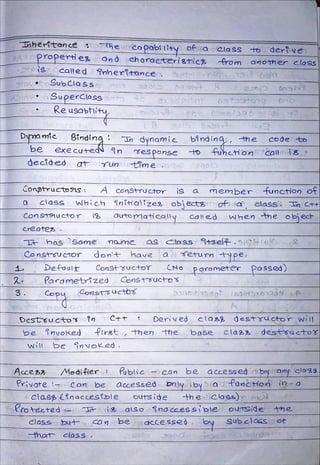 Inheritance : The capability of a class to derive
properties and characteristics from another class
is called inheritance.
• SubClass
• SuperClass
• Reusability
Dynamic Binding : In dynamic binding, the code to
be executed in response to function call is
decided at run time.
Constructors : A constructor is a member function of
a class which initializes objects of a class. In C++
Constructor is automatically called when the object
creates.
It has same name as class itself.
Constructor don't have a return type.
1. Default Constructor (No parameter passed)
2. Parametrized Constructors
3. Copy Constructor
Destructor in C++ : Derived class destructor will
be invoked first, then the base class destructor
will be invoked.
Access Modifier : Public - can be accessed by any class.
Private :- Can be accessed only by a function in a
class (inaccesible outside the class)
Protected - It is also inaccessible outside the
class but can be accessed by subclass of
that class.